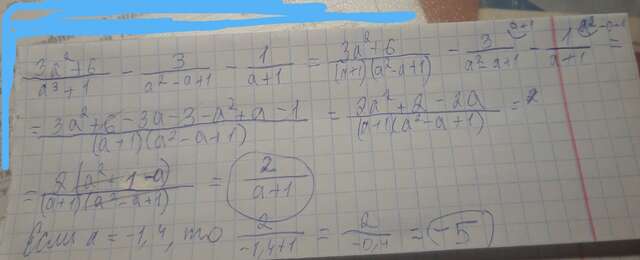 (3a²+6)/(a³+1) - 3/(a²-a+1) - 1/(a+1) = (3a²+6)/((a+1)(a²-a+1)) - 3/(a²-a+1) (a+1) - 1/(a+1) (a²-a+1) =
= (3a²+6-3a-3-a²+a-1)/((a+1)(a²-a+1)) = (2a²+2-2a)/((a+1)(a²-a+1)) =
= 2(a²+1-a)/((a+1)(a²-a+1)) = 2/(a+1)
Если a = -1,4, то 2/(-1,4+1) = 2/(-0,4) = -5